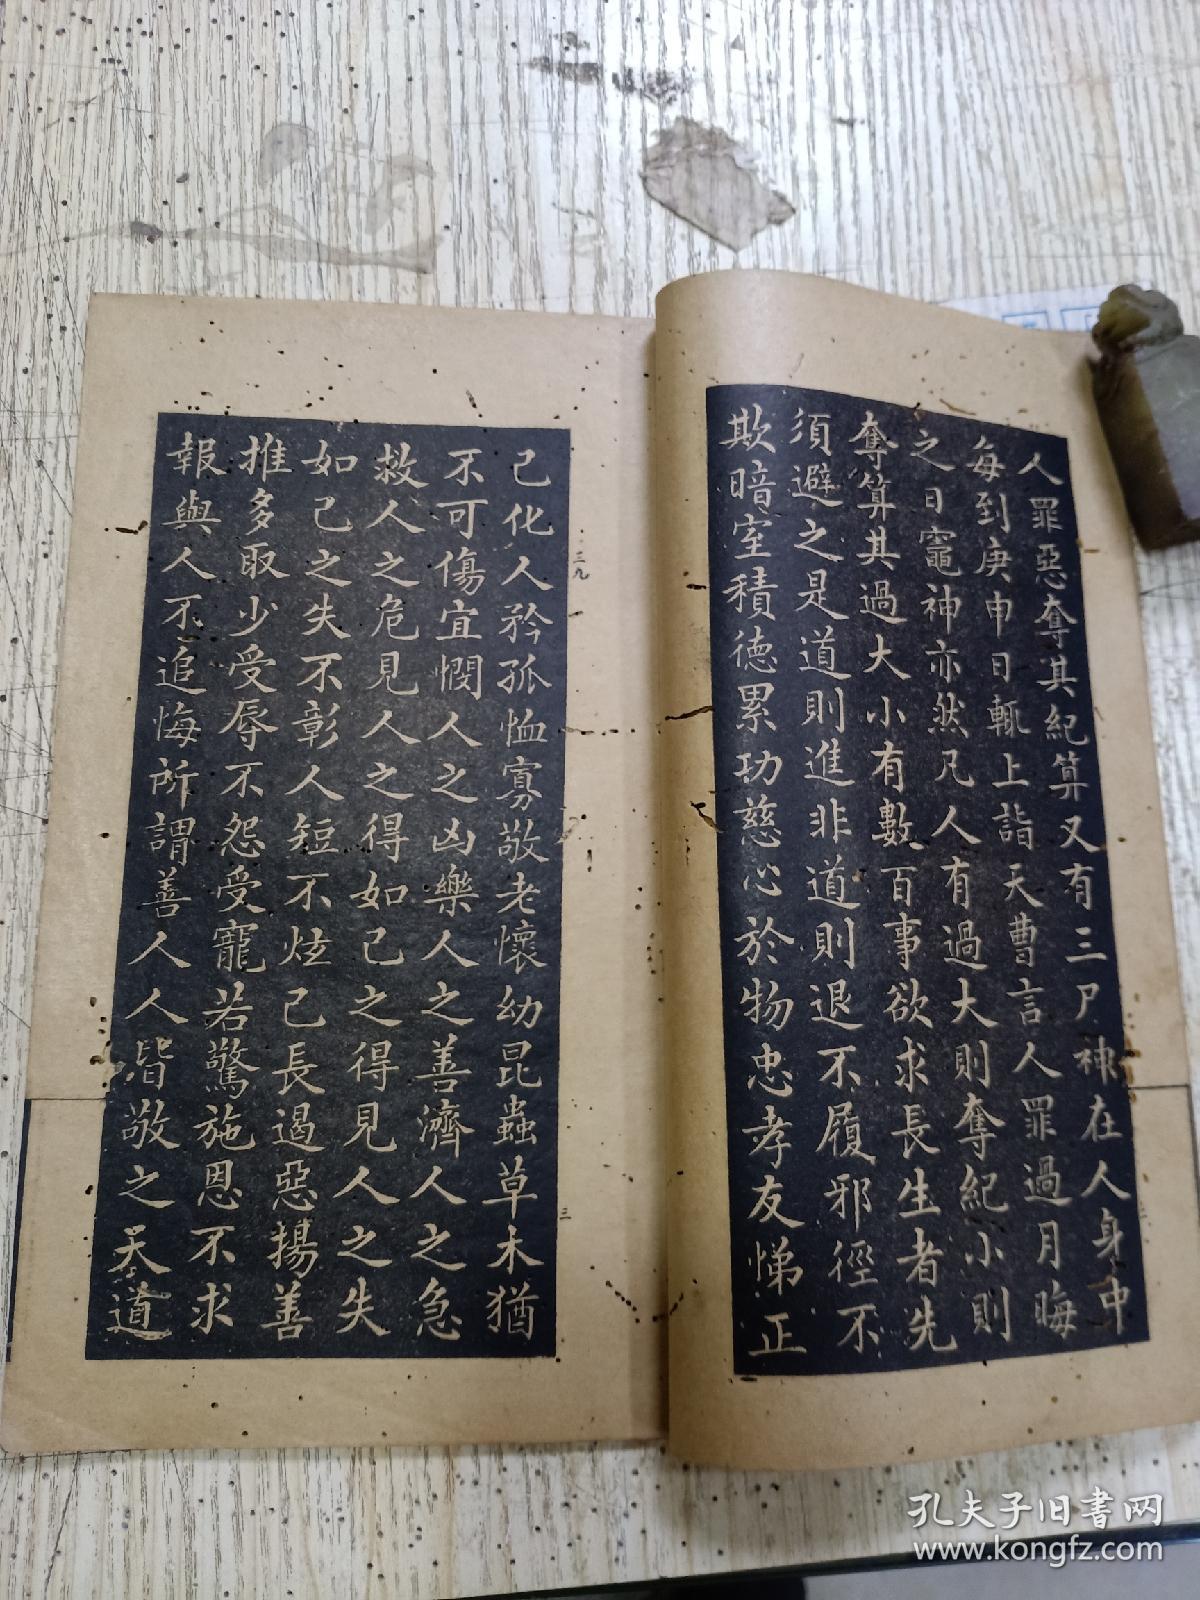 人罪惡奪其紀算又有三尸神在人身中
每到庚申日輒上詣天曹言人罪過月晦
之日竈神亦然凡人有過大則奪紀小則
奪算其過大小有數百事欲求長生者先
須避之是道則進非道則退不履邪徑不
欺暗室積德累功慈心於物忠孝友悌正
三九
三
己化人矜孤恤寡敬老懷幼昆蟲草木猶
不可傷宜憫人之凶樂人之善濟人之急
救人之危見人之得如己之得見人之失
如己之失不彰人短不炫己長遏惡揚善
推多取少受辱不怨受寵若驚施恩不求
報與人不追悔所謂善人人皆敬之天道
孔夫子旧书网
www.kongfz.com